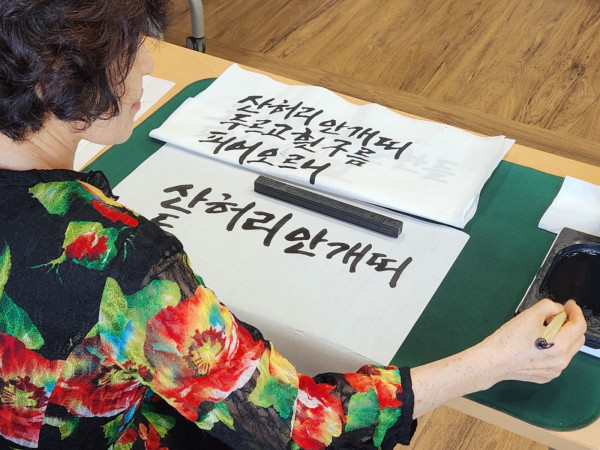 산허리 안개띠
두르고 흰 구름
피어오르니
산허리 안개띠